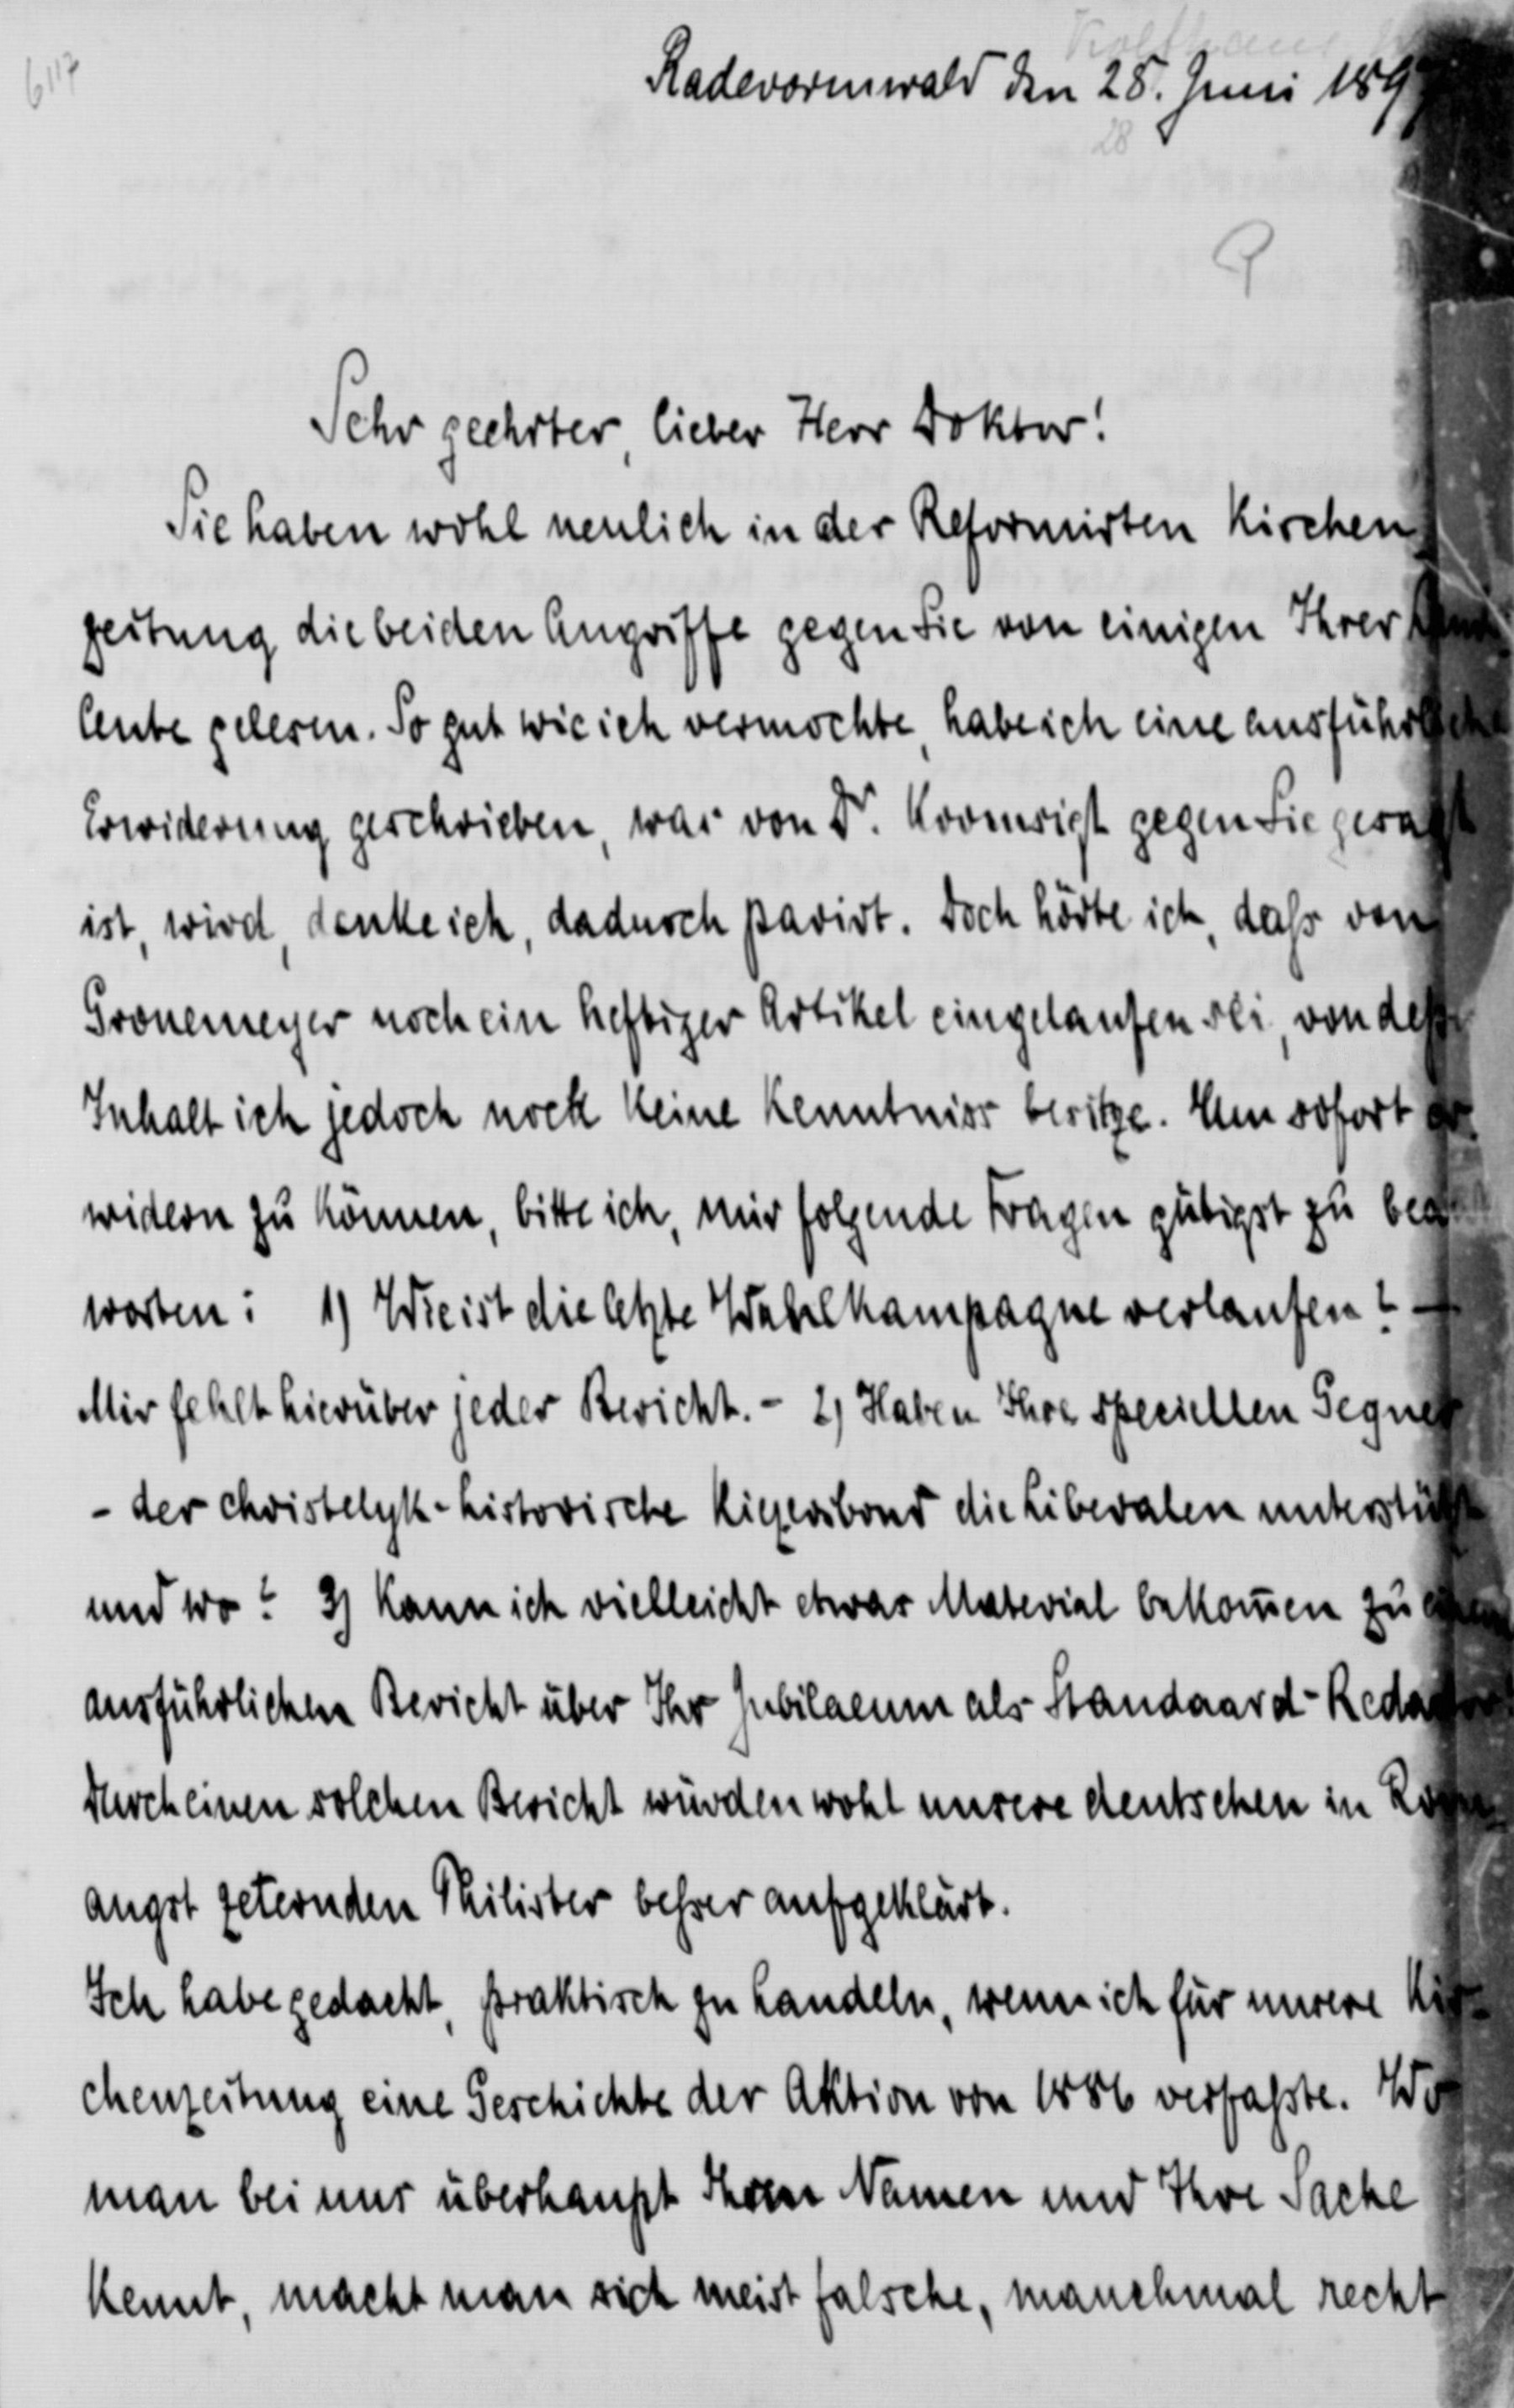 6117
Kolfhaus
Radevormwald den 28. Juni 1897
28
Sehr geehrter, lieber Herr Doktor!
Sie haben wohl neulich in der Reformirten Kirchen
zeitung die beiden Angriffe gegen Sie von einigen Ihrer
leute gelesen. So gut wie ich vermochte, habe ich eine ausführliche
Erwiderung geschrieben, was von Dr. Kromsigt gegen Sie gesagt
ist, wird, denke ich, dadurch parirt. Doch hörte ich, daß von
Gronemeyer noch ein heftiger Artikel eingelaufen sei, von deß
Inhalt ich jedoch noch keine Kenntniss besitze. Um sofort er
widern zu können, bitte ich, mir folgende Fragen gütigst zu bea
worten: 1) Wie ist die letzte Wahlkampagne verlaufen? —
Mir fehlt hierüber jeder Bericht. - 2) Haben Ihre speciellen Gegner
- der christelyk-historische Kiezersbond die Liberalen unterstützt
und wo? 3) Kann ich vielleicht etwas Material bekom̄en zu einem
ausführlichen Bericht über Ihr Jubilaeum als Standaard-Redactor?
Durch einen solchen Bericht würden wohl unsere deutschen in Rom
angst zeternden Philister beßer aufgeklärt.
Ich habe gedacht, praktisch zu handeln, wenn ich für unsere Kir-
chenzeitung eine Geschichte der Aktion von 1886 verfaßte. Wo
man bei uns überhaupt Ihren Namen und Ihre Sache
kennt, macht man sich meist falsche, manchmal recht